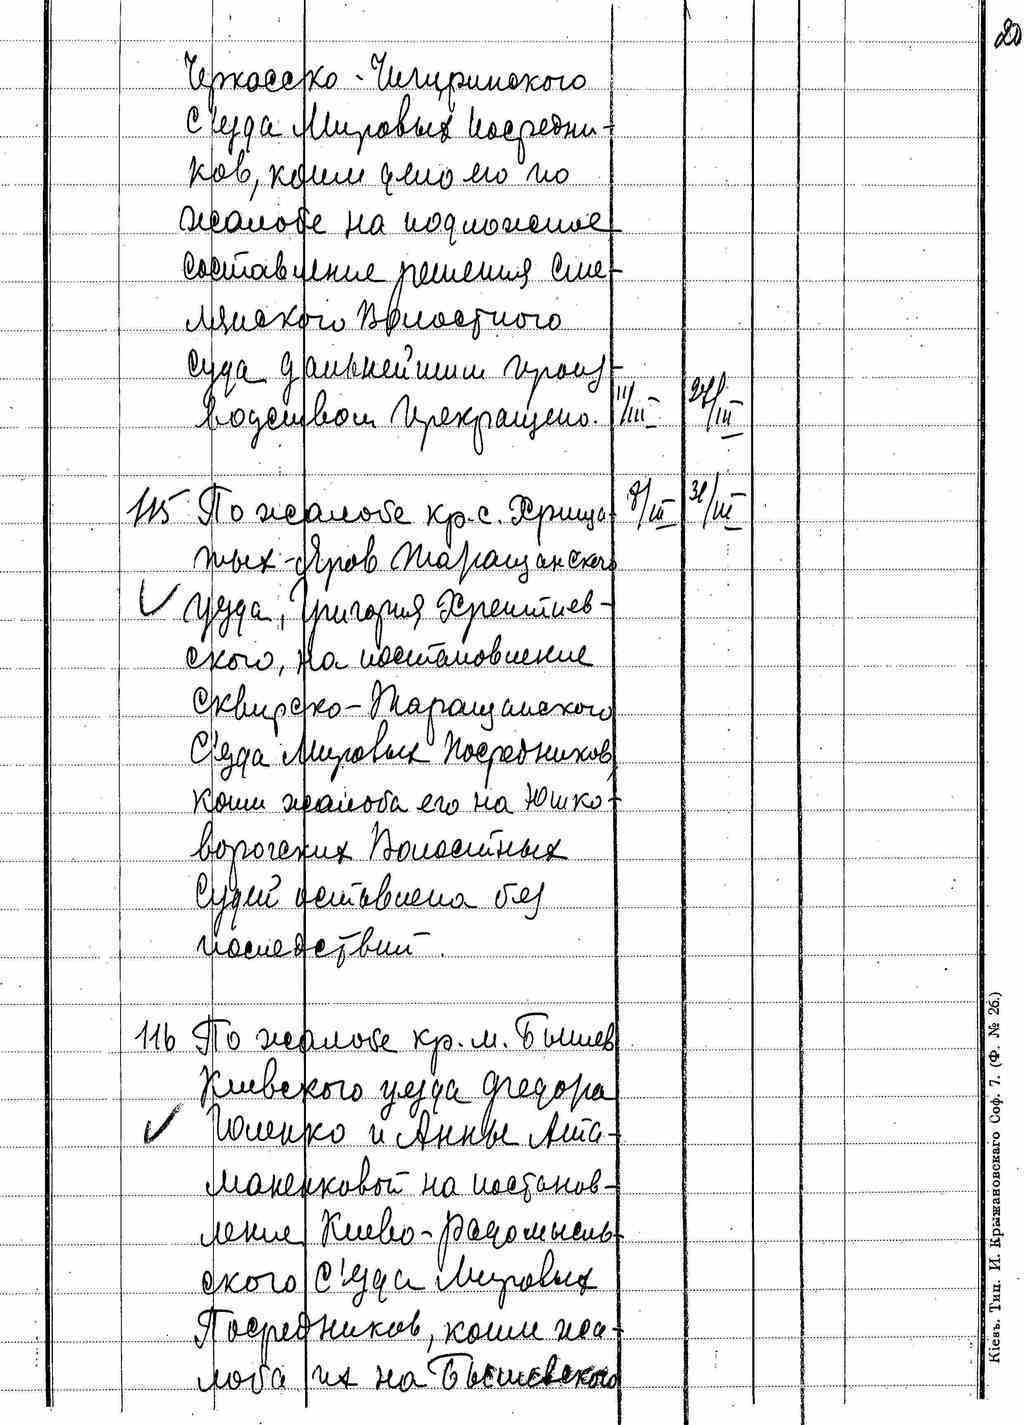 20
Черкасско-Чигиринского
С'езда Мировых Посредни-
ков, коим дело его по
жалобе на подложное
составление решения Сме-
лянского Волостного
Суда дальнейшим произ-
водством прекращено. 11/III 27/III
115 По жалобе кр. с. Хрища- 8/III 31/III
тых-Яров Таращанского
уезда, Григория Хрептиев-
ского, на постановление
Сквирско-Таращанского
С'езда Мировых Посредников,
коим жалоба его на Юшко-
ворогских Волостных
Судей оставлена без
последствий.
116 По жалобе кр. м. Бышев
Киевского уезда Федора
Юленко и Анны Ата-
маненковой на постанов-
ление Киево-Радомысль-
ского С'езда Мировых
Посредников, коим жа-
лоба их на Бышевского
Кіевъ. Тип. И. Крыжановскаго Соф. 7. (Ф. № 26.)